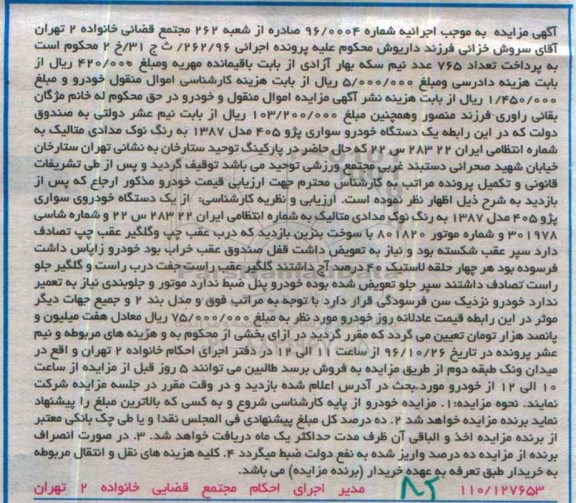 آگهی مزایده به موجب اجرائیه شماره ۹۶/۰۰۰۴ صادره از شعبه ۲۶۲ مجتمع قضائی خانواده ۲ تهران
آقای سروش خزائی فرزند داریوش محکوم علیه پرونده اجرائی ۲۶۲/۹۶/ ث ج ۳۱/خ ۲ محکوم است
به پرداخت تعداد ۷۶۵ عدد نیم سکه بهار آزادی از بابت باقیمانده مهریه ومبلغ ۴۲۰/۰۰۰ ریال از
بابت هزینه دادرسی ومبلغ ۵/۰۰۰/۰۰۰ ریال از بابت هزینه کارشناسی اموال منقول خودرو و مبلغ
۱/۴۵۰/۰۰۰ ریال از بابت هزینه نشر آگهی مزایده اموال منقول و خودرو در حق محکوم له خانم مژگان
بقائی راوری فرزند منصور وهمچنین مبلغ ۱۰۳/۲۰۰/۰۰۰ ریال از بابت نیم عشر دولتی به صندوق
دولت که در این رابطه یک دستگاه خودرو سواری پژو ۴۰۵ مدل ۱۳۸۷ به رنگ نوک مدادی متالیک به
شماره انتظامی ایران ۲۲ ۲۸۳ س ۲۲ که حال حاضر در پارکینگ توحید ستارخان به نشانی تهران ستارخان
خیابان شهید صحرائی دستبند غربی مجتمع ورزشی توحید می باشد توقیف گردید و پس از طی تشریفات
قانونی و تکمیل پرونده مراتب به کارشناس محترم جهت ارزیابی قیمت خودرو مذکور ارجاع که پس از
بازدید به شرح ذیل اظهار نظر نموده است. ارزیابی و نظریه کارشناسی: از یک دستگاه خودروی سواری
پژو ۴۰۵ مدل ۱۳۸۷ به رنگ نوک مدادی متالیک به شماره انتظامی ایران ۲۲ ۲۸۳ س ۲۲ و شماره شاسی
۳۰۱۹۷۸ و شماره موتور ۸۰۱۸۲۰ با سوخت بنزین بازدید که درب عقب چپ وگلگیر عقب چپ تصادف
دارد سپر عقب شکسته بود و نیاز به تعویض داشت قفل صندوق عقب خراب بود خودرو زاپاس داشت
فرسوده بود هر چهار حلقه لاستیک ۲۰ درصد آج داشتند گلگیر عقب راست جفت درب راست و گلگیر جلو
راست تصادف داشتند سپر جلو تعویض شده بوده خودرو پنل ضبط ندارد موتور و جلوبندی نیاز به تعمیر
ندارد خودرو نزدیک سن فرسودگی قرار دارد با توجه به مراتب فوق و مدل بند ۲ و جمیع جهات دیگر
موثر در این رابطه قیمت عادلانه روز خودرو مورد نظر به مبلغ ۷۵/۰۰۰/۰۰۰ ریال معادل هفت میلیون و
پانصد هزار تومان تعیین می گردد که مقرر گردید در ازای بخشی از محکوم به و هزینه های مربوطه و نیم
عشر پرونده در تاریخ ۹۶/۱۰/۲۶ از ساعت ۱۱ الی ۱۲ در دفتر اجرای احکام خانواده ۲ تهران و اقع در
میدان ونک طبقه دوم از طریق مزایده به فروش برسد طالبین می توانند ۵ روز قبل از مزایده از ساعت
۱۰ الی ۱۲ از خودرو مورد.بحث در آدرس اعلام شده بازدید و در وقت مقرر در جلسه مزایده شرکت
نمایند. نحوه مزایده:۱. مزایده خودرو از پایه کارشناسی شروع و به کسی که بالاترین مبلغ را پیشنهاد
نماید برنده مزایده خواهد شد ۲. ده درصد کل مبلغ پیشنهادی فی المجلس نقدا و یا طی چک بانکی معتبر
از برنده مزایده اخذ و الباقی آن ظرف مدت حداکثر یک ماه دریافت خواهد شد. ۳. در صورت انصراف
برنده از مزایده ده درصد واریز شده به نفع دولت ضبط میگردد ۴. کلیه هزینه های نقل و انتقال مربوطه
به خریدار طبق تعرفه به عهده خریدار (برنده مزایده) می باشد.
۱۱۰/۱۲۷۶۵۳ مدیر اجرای احکام مجتمع قضایی خانواده ۲ تهران